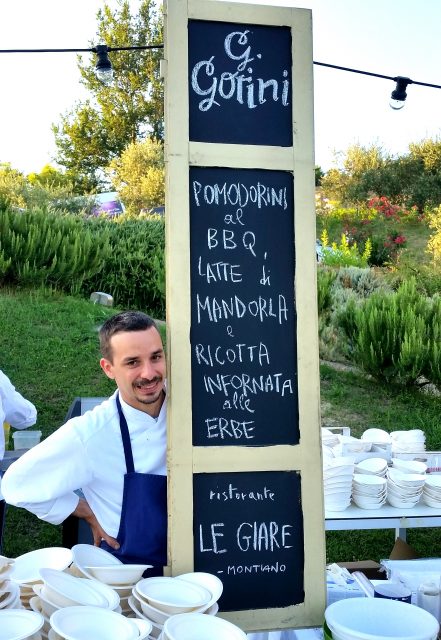 G.
Gorini
POMODORINI
al
BBQ,
LATTE di
MANDORLA
e
RICOTTA
INFORNATA
alle
ERBE
ristorante
LE GIARE
- MONTIANO